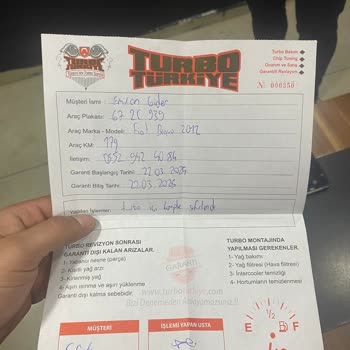 TURBO
TÜRKİYE
Turbo Bakım
Chip Tuning
Onarım ve Satış
Garantili Revizyon
No 000256
Müşteri İsmi :
Araç Plakası: 67 ZE 939
Araç Marka - Modeli: Fiat 2012
Araç KM: 179
İletişim: 0552 942 40 84
Garanti Başlangıç Tarihi: 22.03.2025
Garanti Bitiş Tarihi: 22.03.2026
Yapılan İşlemler: turbo
TURBO REVİZYON SONRASI
GARANTİ DIŞI KALAN ARIZALAR.
1- Yabancı nesne (parça)
2- Kirli yağ arızı
3- Kirlenmiş yağ
4- Aşırı ısınma ve aşırı yüklenme
Garanti dışı kalma sebebidir.
GARANTİ
TURBO MONTAJINDA
YAPILMASI GEREKENLER.
1- Yağ bakımı
2- Yağ filtresi (Hava filtresi)
3- İntercooler temizliği
4- Hortumların temizlenmesi
www.turboturkiye.com
Bizi Denemeden Karar Vermeyiniz!!
MÜŞTERİ
İŞLEMİ YAPAN USTA
E
1/2
F